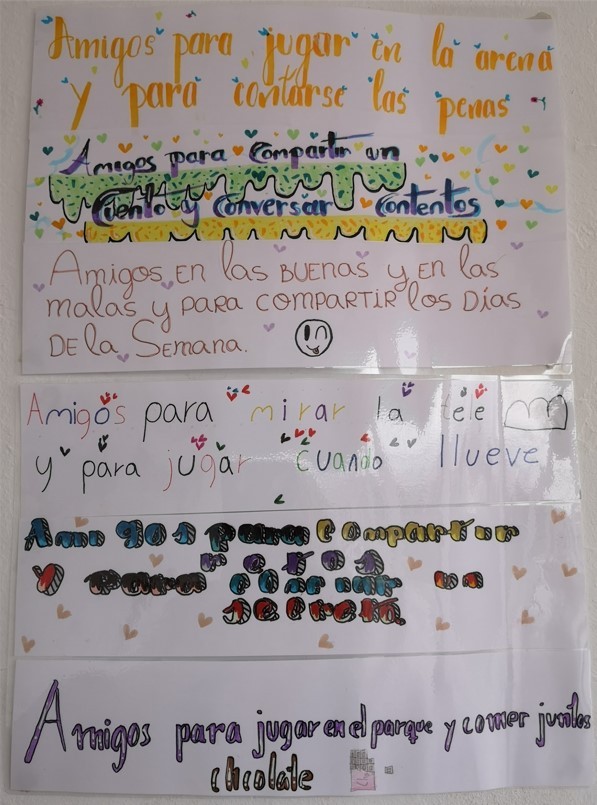 Amigos para jugar en la arena
y para contarse las penas
Amigos para Compartir un
Cuento y Conversar Contentos
Amigos en las buenas y en las
malas y para compartir los Días
De la Semana.
Amigos para mirar la tele
y para jugar cuando llueve
Amigos para Compartir
retos
y para contar un
secreto.
Amigos para jugar en el parque y comer juntos
chcolate